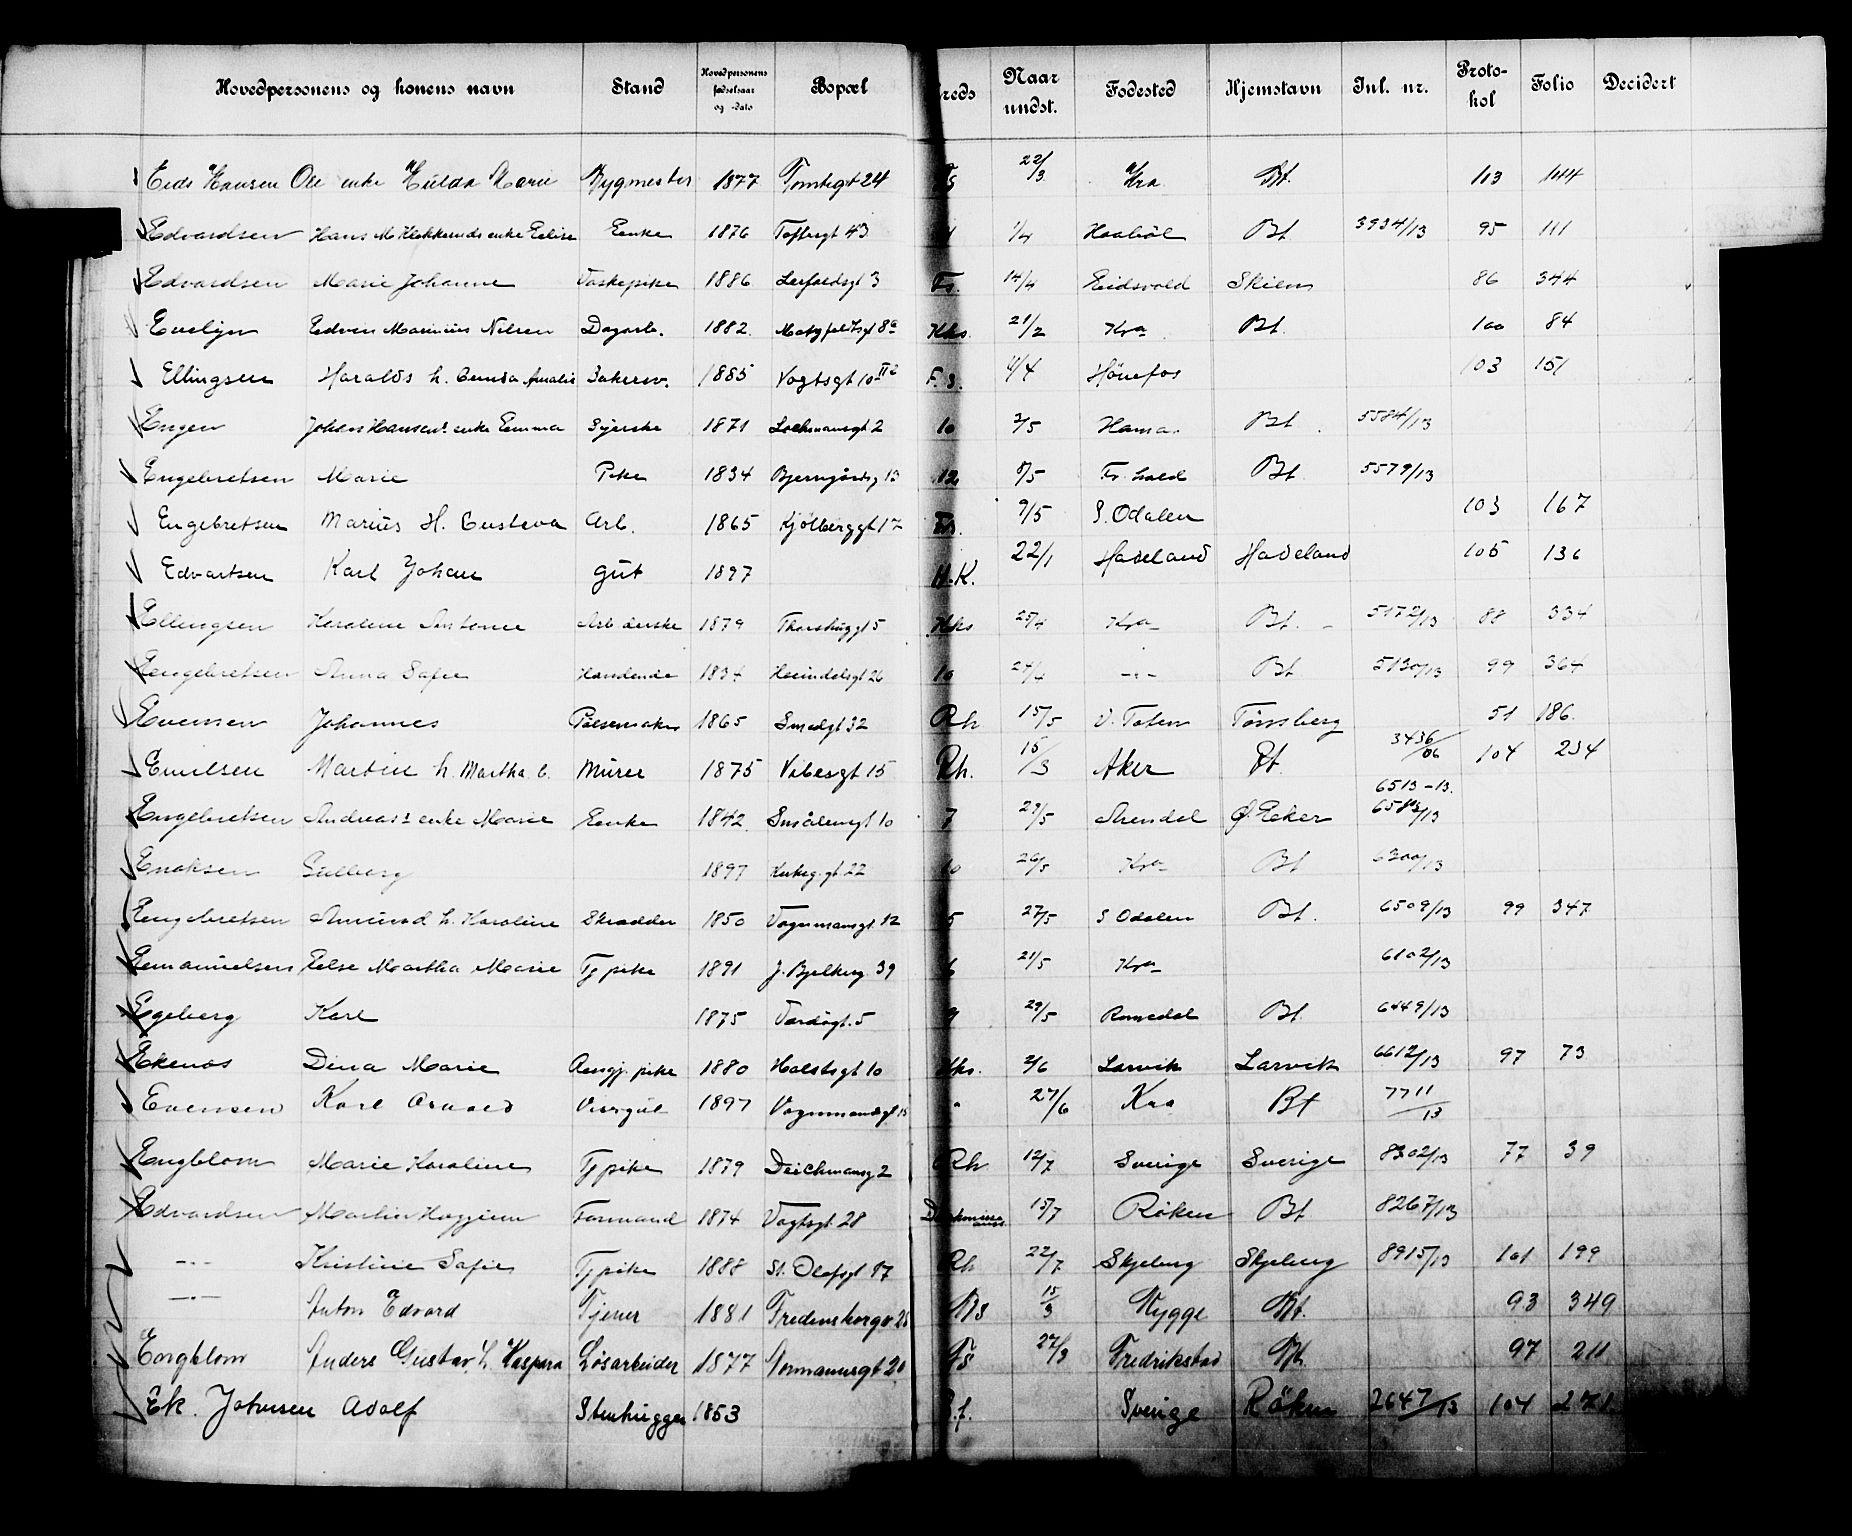 Hovedpersonens og konens navn Stand Hovedpersonens fødselsaar og -dato Bopæl Kreds Naar undst. Fødested Hjemstavn Jul. nr. Protokol Folio Decidert
Eids Hansen Ole enke Hulda Marie Bygmester 1877 Tomtegt 24 Fs 22/3 Kra Bt. 103 144
Edvardsen Hans M enke Elise Enke 1876 Toftesgt 43 1/4 Haabøl Bt 3934/13 95 111
Edvardsen Marie Johanne Vaskepike 1886 3 Fs. 14/4 Eidsvold Skien 86 344
Evelyn Edvin Marinius Nilsen Dagarb. 1882 8a Kks. 21/2 Kra Bt. 100 84
Ellingsen Haralds h. Gunda Amalie 1885 Vogtsgt 10 F.s. 4/4 Hönefos 103 151
Engen Johan Hansens enke Emma Syerske 1871 Lochmansgt 2 10 2/5 Hamar Bt 5584/13
Engebretsen Marie Pike 1834 13 12 8/5 Fr. hald Bt 5579/13
Engebretsen Marius H. Gusteva Arb. 1865 Kjölberggt 12 Fs. 9/5 S. Odalen 103 167
Edvartsen Karl Johan gut 1897 H.K. 22/1 Hadeland Hadeland 105 136
Ellingsen Karoline Antonie Arb derske 1879 5 Kks 25/4 Kra Bt. 5172/13 88 334
Engebretsen Anna Safie 1834 Heimdalsgt 26 10 24/4 -"- Bt 5130/13 99 364
Evensen Johannes Pølsemaker 1865 Smalgt 32 Rh 15/5 V. Toten Tønsberg 51 186.
Emilsen Martin h. Martha C. Murer 1875 Vibesgt 15 Rh. 15/3 Aker Bt. 3436/06 104 234
6513-13.
Engebretsen Andreas's enke Marie Enke 1842 Smålensgt 10 7 29/5 Arendal Ø. Eker 6583/13
Enoksen Solberg 1897 22 10 26/5 Kra Bt 6300/13
Engebretsen Amund h. Karoline Skrædder 1850 Vognmansgt. 12 5 27/5 S Odalen Bt. 6509/13 99 347
Emanuelsen Else Martha Marie Tj pike 1891 39 6 21/5 Kra 6102/13
Egeberg Karl 1875 Vardøgt. 5 9 29/5 Romedal Bt 6449/13
Ekenæs Dina Marie Rengj. pike 1880 Holstsgt 10 Kks. 2/6 Larvik Larvik 6612/13 97 73
Evensen Karl Osvald Visergut 1897 Vognmandsgt 15 " 27/6 Kra Bt 7711/13
Engblom Marie Karoline Tj pike 1879 Deichmansg 2 Rh 12/7 Sverige Sverige 8302/13 77 39
Edvardsen Martin Formand 1874 Vogtsgt 28 15/7 Røken Bt 8267/13
-"- Kristine Safie Tj pike 1888 St. Olafsgt 17 Rh 22/7 Skjeberg Skjeberg 8915/13 101 199
-"- Anton Edvard Tjener 1881 Fredensborgv 28 Bs 15/3 Rygge Bt. 93 349
Engblom Anders Gustav h. Kaspara Løsarbeider 1877 Normannsgt 20 Fs 27/3 Fredrikstad Bt. 97 211
Ek. Johnsen Adolf Stenhugger 1853 B.f. Sverige Röken 2647/13 104 271